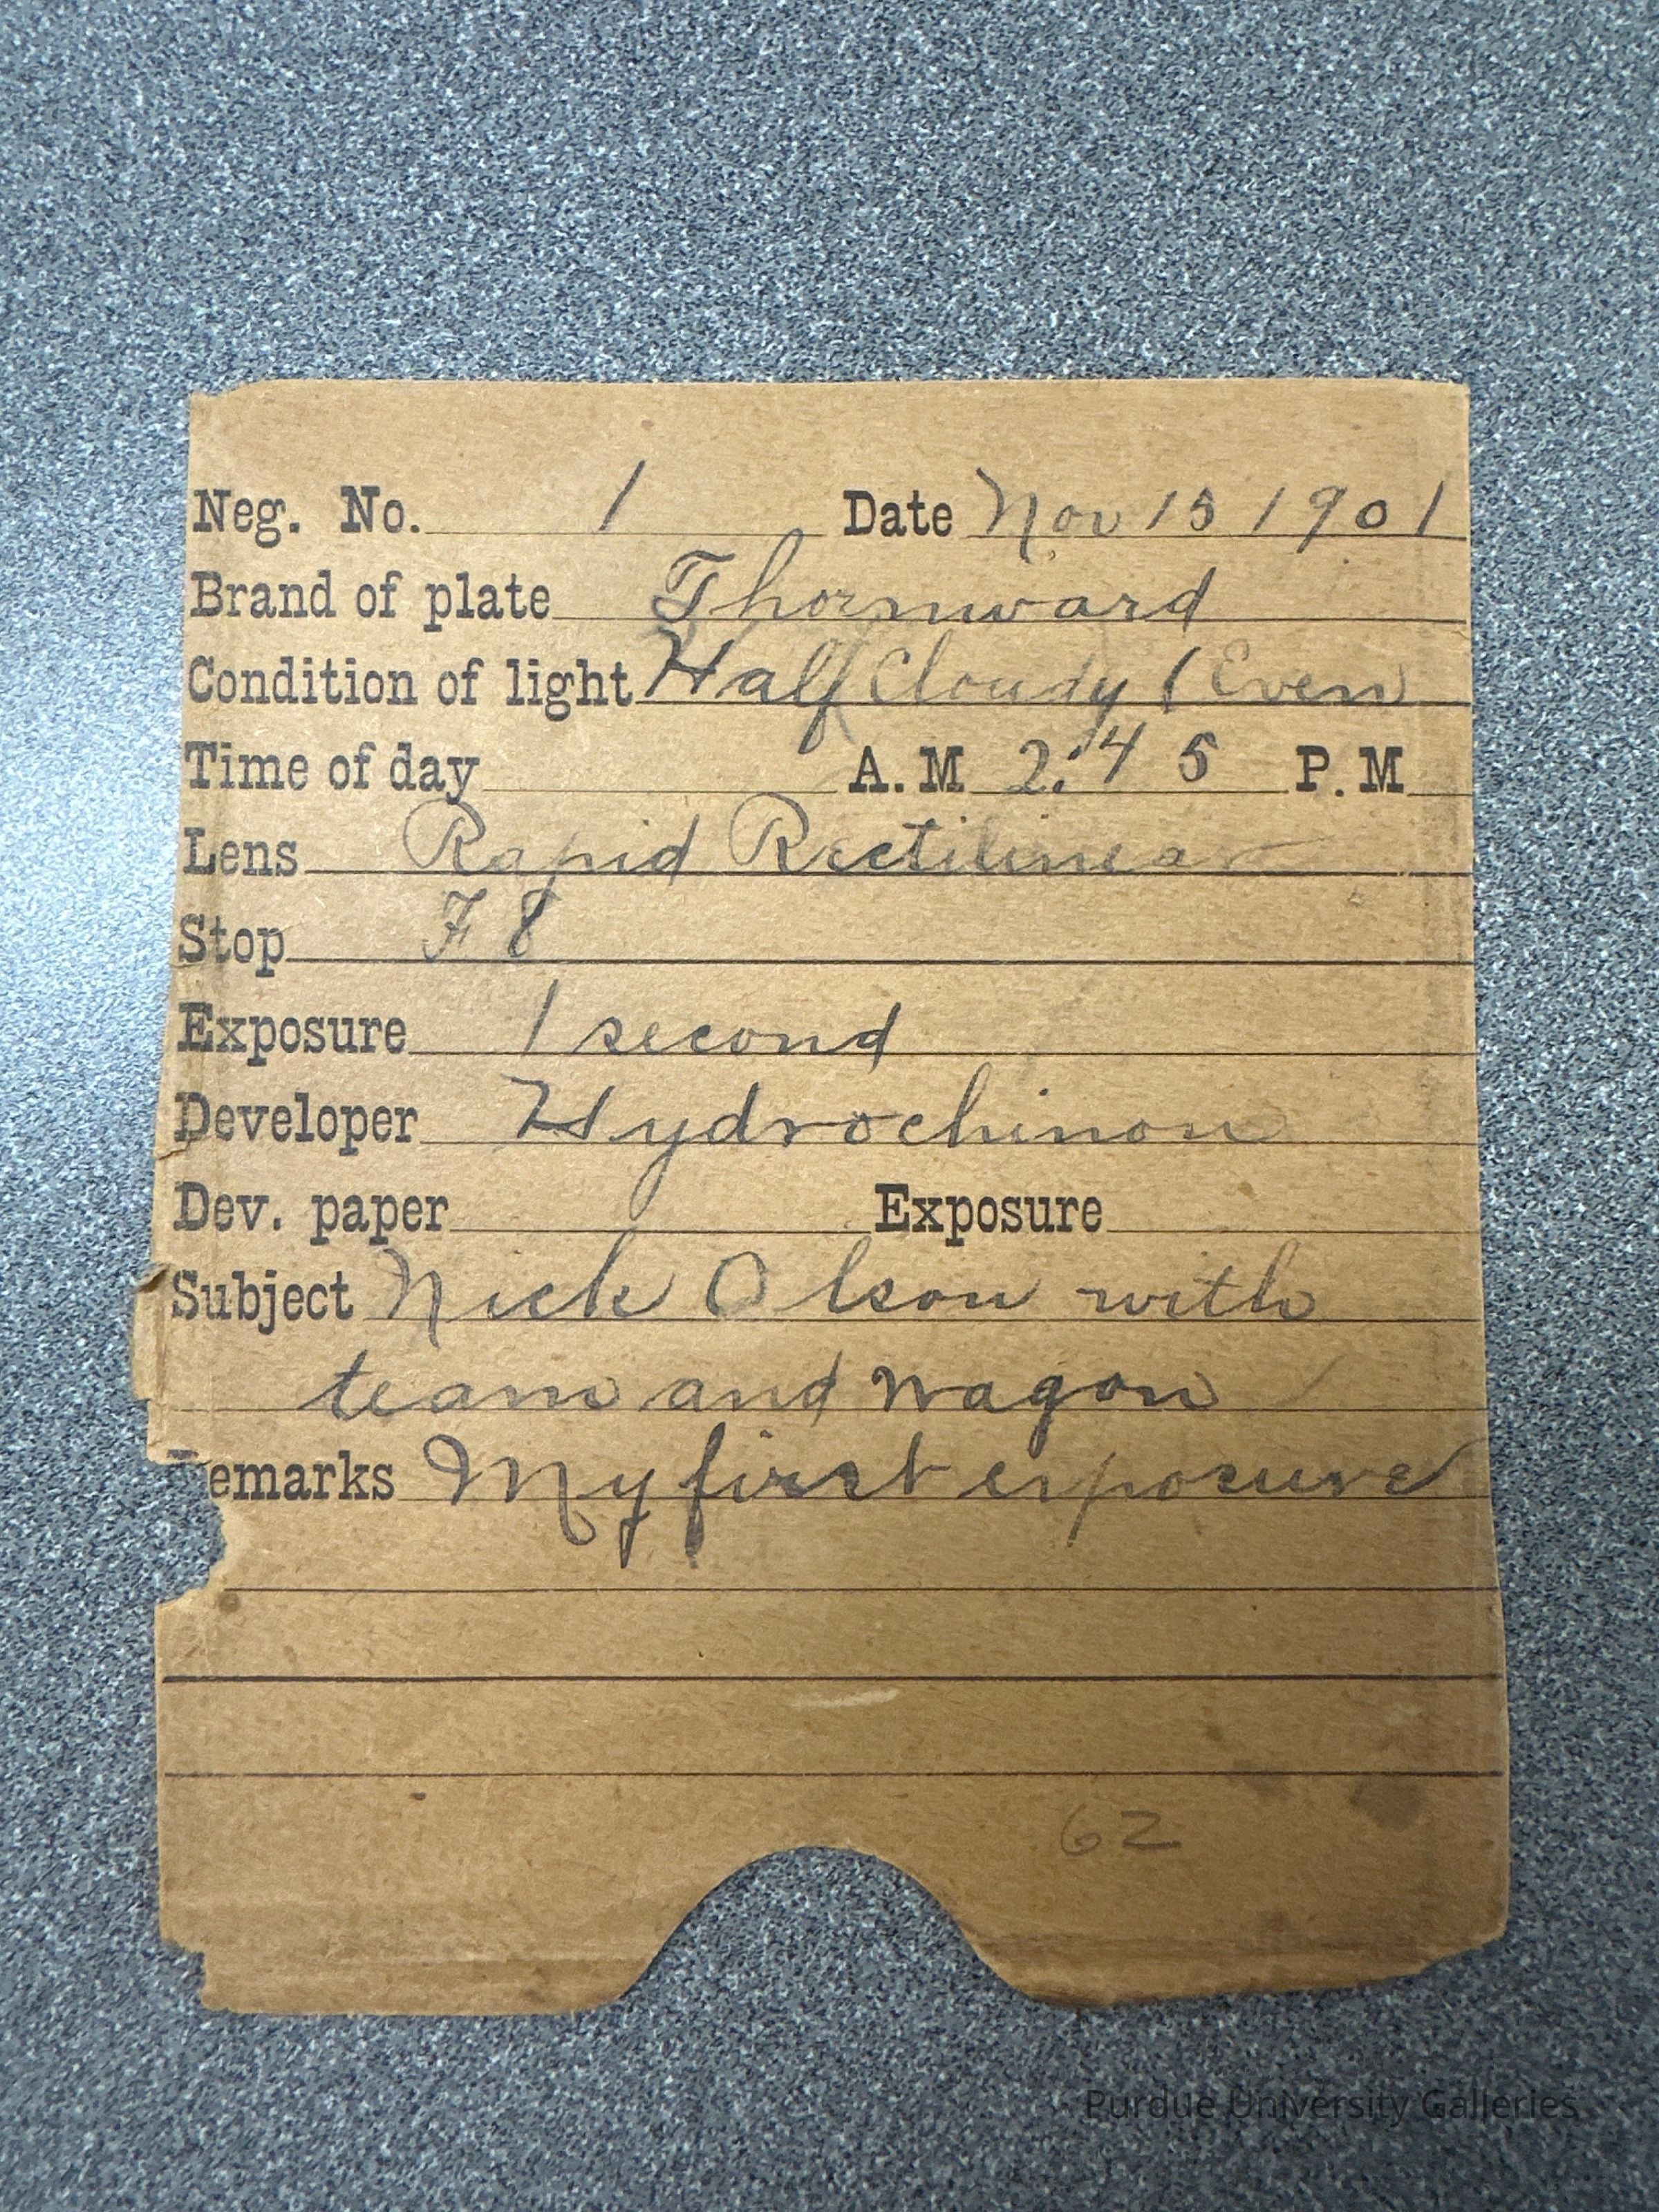 Neg. No. 1 Date Nov 15 1901
Brand of plate Thornward
Condition of light Half Cloudy (Even
Time of day A.M 2:45 P.M
Lens Rapid Rectilinear
Stop F 8
Exposure 1 second
Developer Hydrochinon
Dev. paper Exposure
Subject Nick Olson with
team and wagon
Remarks My first exposure
62
Purdue University Galleries